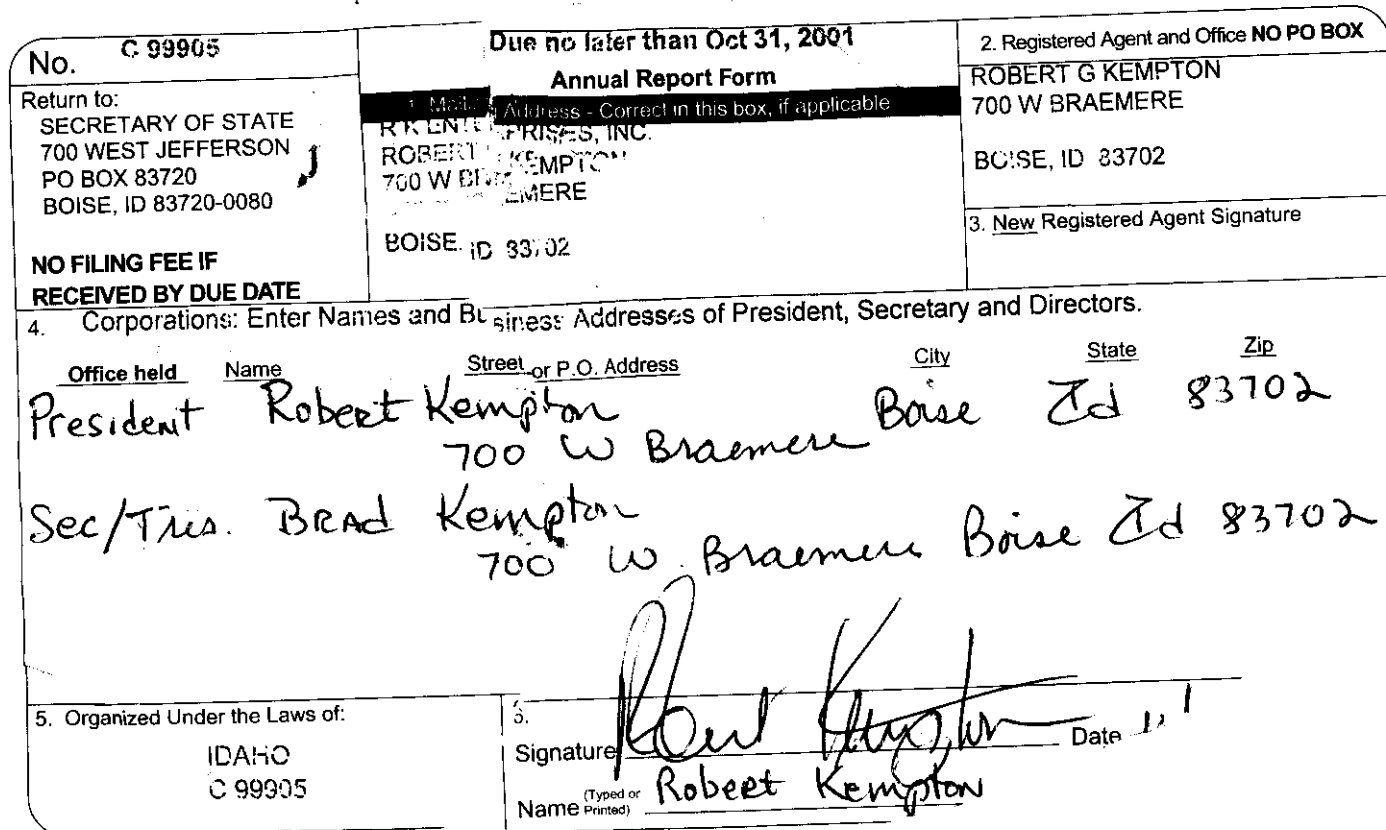 No. C 99905
Return to:
SECRETARY OF STATE
700 WEST JEFFERSON
PO BOX 83720
BOISE, ID 83720-0080
NO FILING FEE IF
RECEIVED BY DUE DATE
Due no later than Oct 31, 2001
Annual Report Form
1. Address - Correct in this box, if applicable
R K ENTERPRISES, INC.
ROBERT KEMPTON
700 W BRAEMERE
BOISE, ID 83702
2. Registered Agent and Office NO PO BOX
ROBERT G KEMPTON
700 W BRAEMERE
BOISE, ID 83702
3. New Registered Agent Signature
4. Corporations: Enter Names and Business Addresses of President, Secretary and Directors.
Office held Name Street or P.O. Address City State Zip
President Robert Kempton Boise Id 83702
700 W Braemere
Sec/Tres. Brad Kempton
700 W. Braemere Boise Id 83702
5. Organized Under the Laws of:
IDAHO
C 99905
6.
Signature Robert Kempton Date
Name (Typed or Printed) Robert Kempton